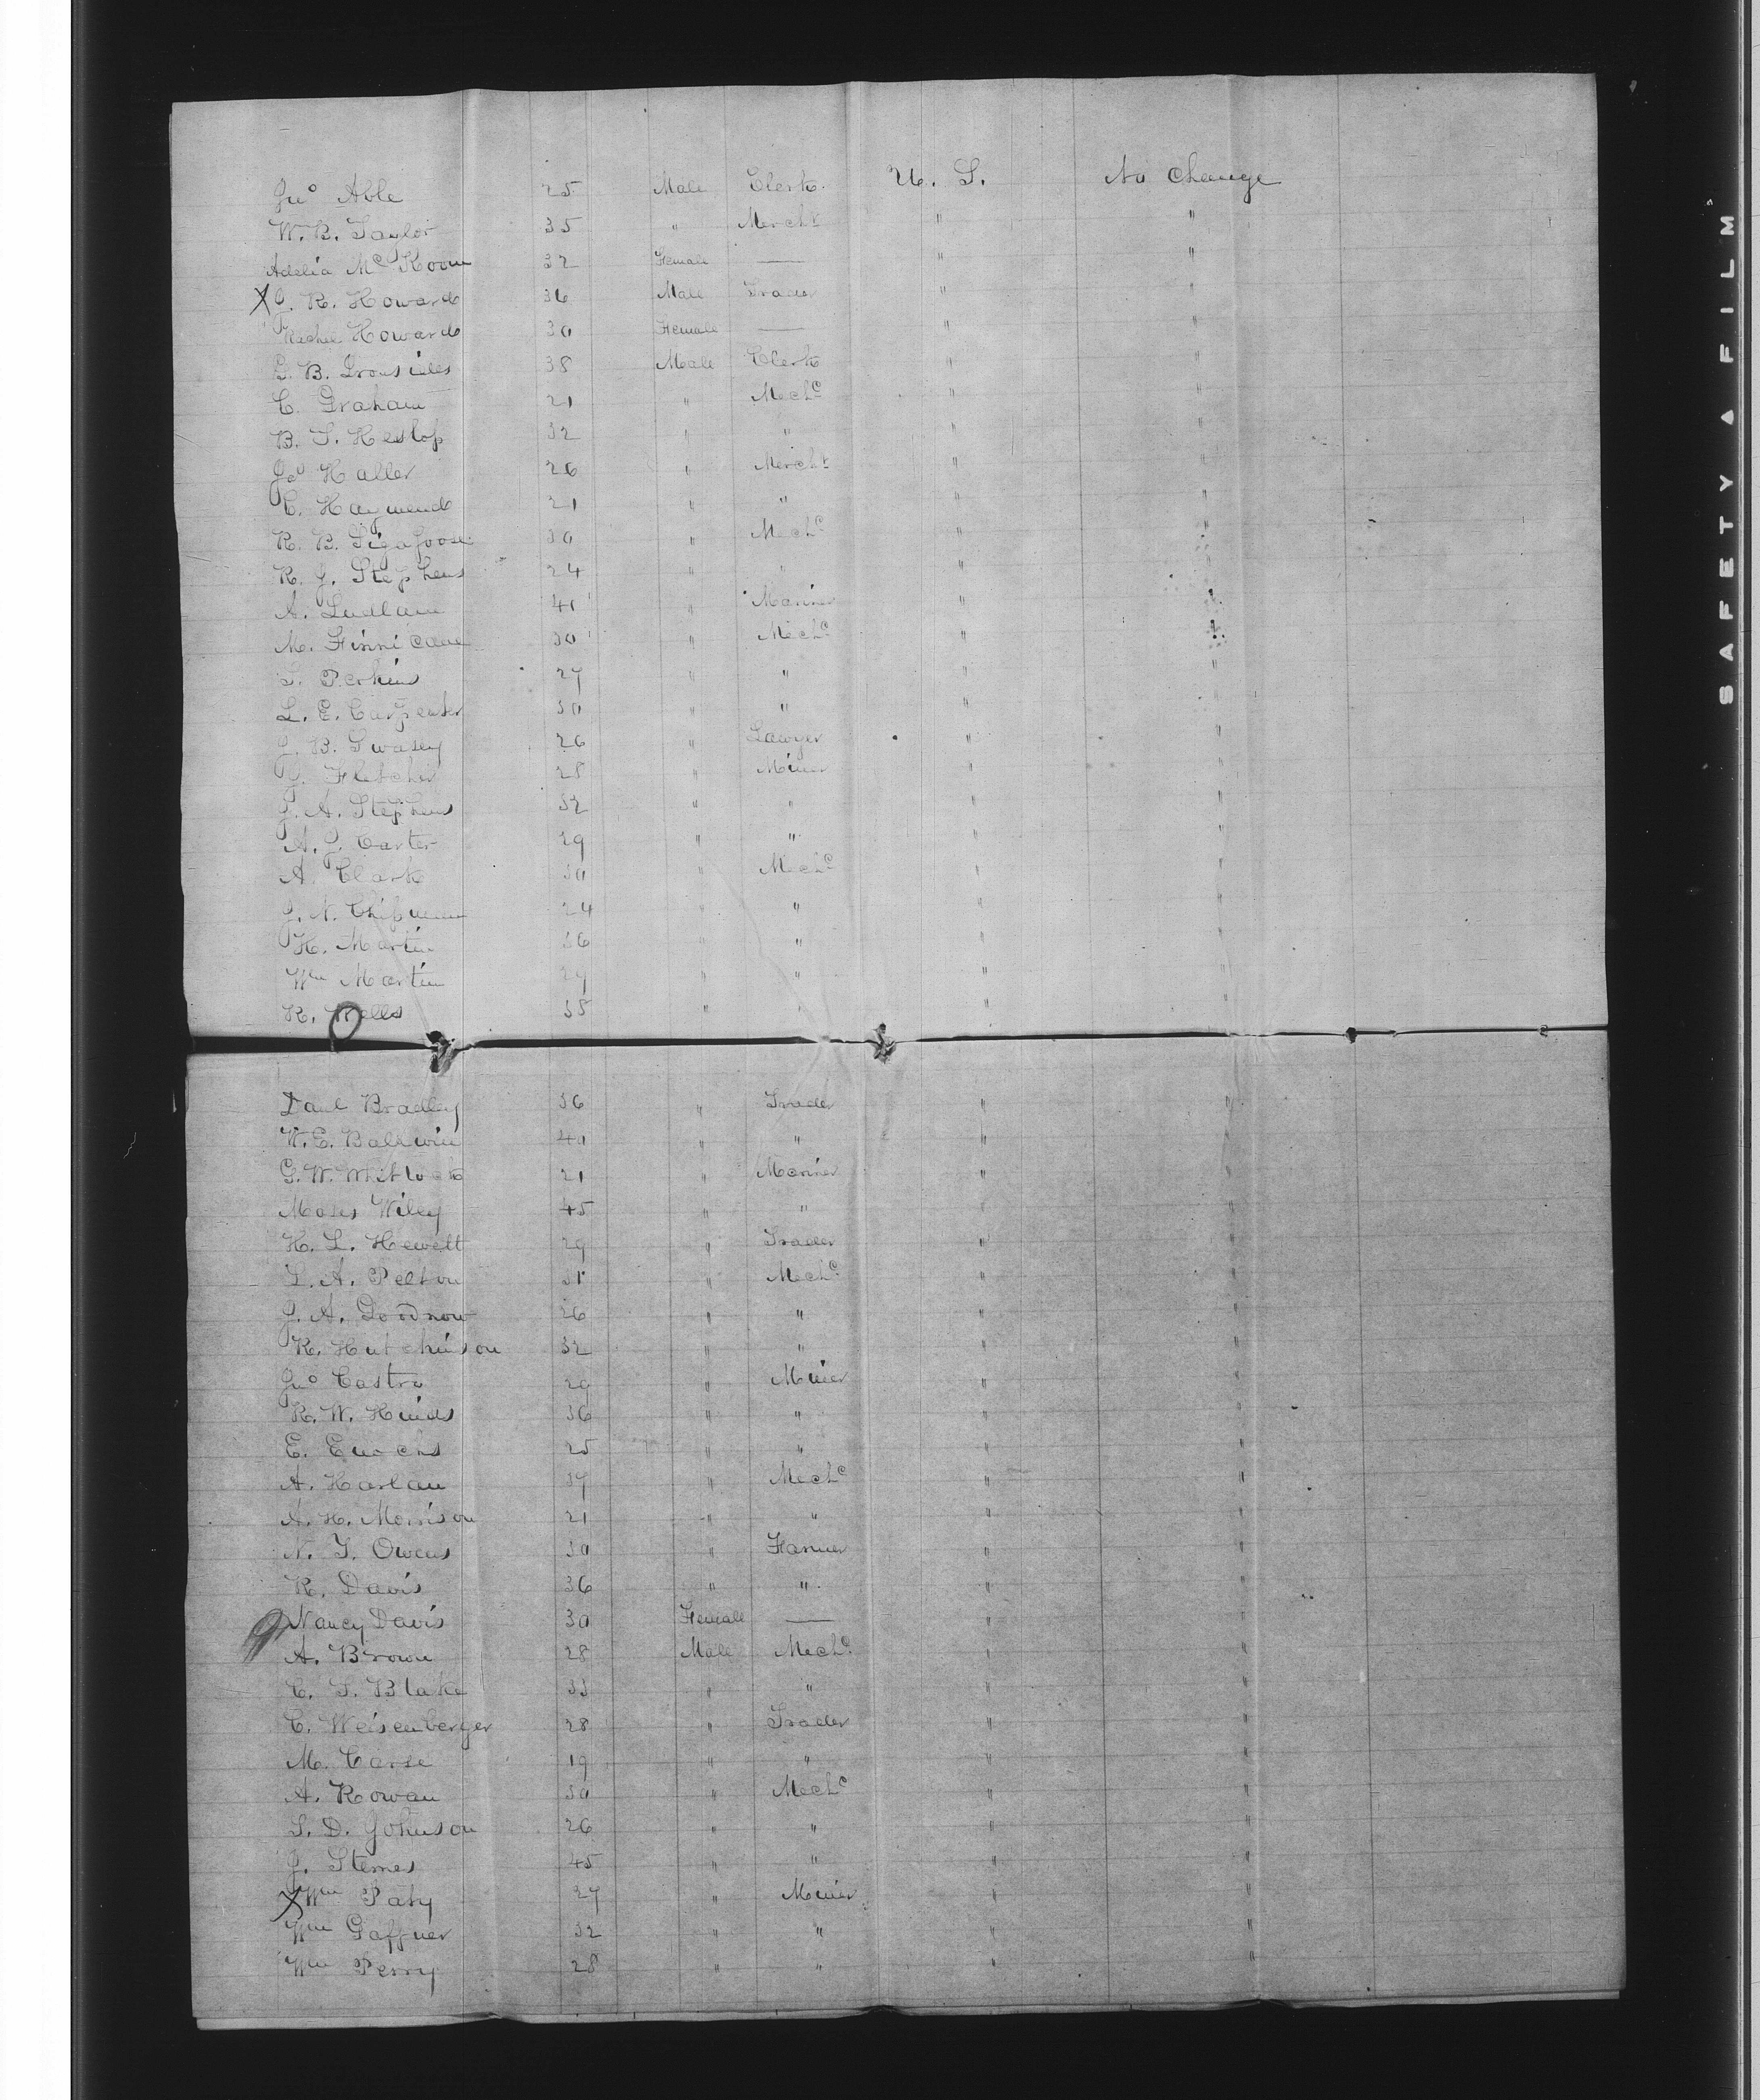 Jno Able 25 Male Clerk. U. S. No Change
W. B. Taylor 35 " Mercht " "
Adelia Mc Koom 32 Female — " "
X J. R. Howard 36 Male Trader " "
Rachel Howard 30 Female — " "
G. B. Ironsides 38 Male Clerk " "
C. Graham 21 " Mechc " "
B. T. Heslop 32 " " " "
Jo Haller 26 " Mercht " "
C. Haymend 21 " " " "
R. B. Sigafoose 30 " Mechc " "
R. J. Stephens 24 " " " "
A. Ludlam 41 " Mariner " "
M. Finnicane 30 " Mechc " "
Perkins 27 " " " "
L. E. Carpenter 30 " " " "
J. B. Swasey 26 " Lawyer " "
J. Fletcher 28 " Miner " "
J. A. Stephens 32 " " " "
A. J. Carter 29 " " " "
A. Clark 30 " Mechc " "
J. N. Chipman 24 " " " "
H. Martin 36 " " " "
Wm Martin 29 " " " "
R. Wells 35 " " " "
Danl Bradley 36 " Trader " "
W. E. Baldwin 40 " " " "
G. W. Whitlock 21 " Mariner " "
Moses Wiley 45 " " " "
H. L. Hewett 29 " Trader " "
L. A. Pelton 31 " Mechc " "
J. A. Goodnow 26 " " " "
R. Hutchinson 32 " " " "
Jno Castro 29 " Miner " "
R. W. Hinds 36 " " " "
E. Enochs 25 " " " "
A. Harlan 37 " Mechc " "
A. H. Morrison 21 " " " "
N. T. Owens 30 " Farmer " "
R. Davis 36 " " " "
Nancy Davis 30 Female — " "
A. Brown 28 Male Mechc " "
C. T. Blake 33 " " " "
C. Weisenberger 28 " Trader " "
M. Carse 19 " " " "
A. Rowan 30 " Mechc " "
S. D. Johnson 26 " " " "
J. Sternes 45 " " " "
X Wm Paty 27 " Miner " "
Wm Gaffner 32 " " " "
Wm Perry 28 " " " "
SAFETY ▲ FILM